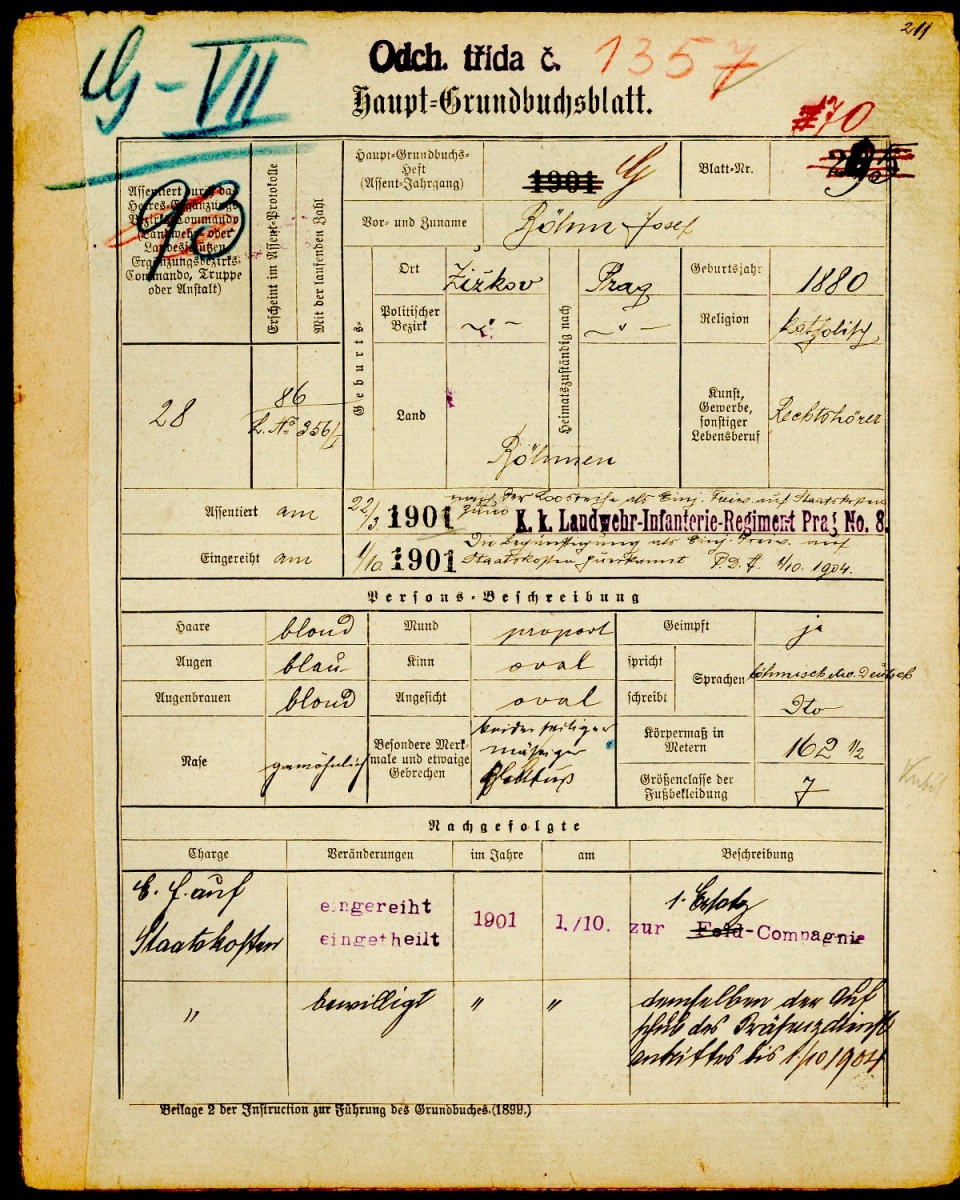 211
G-VII
Odch. třída č. 1357
Haupt=Grundbuchsblatt.
#70
Assentiert durch das
Heeres-Ergänzungs-
Bezirks-Commando
(Landwehr- oder
Landesschützen-
Ergänzungsbezirks-
Commando, Truppe
oder Anstalt)
93
Erscheint im Assent-Protokolle
Mit der laufenden Zahl
Haupt-Grundbuchs-
Heft
(Assent-Jahrgang)
1901 G
Blatt-Nr.
Vor- und Zuname Böhm Josef
Geburts-
Ort Žižkov
Heimatszuständig nach
Prag
Geburtsjahr 1880
Politischer
Bezirk
Religion katholisch
28
86
L. No 356/I
Land Böhmen
Kunst,
Gewerbe,
sonstiger
Lebensberuf
Rechtshörer
Assentiert am 22/3 1901
nach der Losreihe als Einj. Freiw. auf Staatskosten
zum K. k. Landwehr-Infanterie-Regiment Prag No. 8.
Eingereiht am 1/10. 1901
Die Begünstigung als Einj. Freiw. auf
Staatskosten zuerkannt P. D. A. 1/10. 1904.
Persons-Beschreibung
Haare blond Mund proport Geimpft ja
Augen blau Kinn oval spricht Sprachen böhmisch etw. Deutsch
Augenbrauen blond Angesicht oval schreibt Dto
Nase gewöhnlich
Besondere Merk-
male und etwaige
Gebrechen
beiderseitiger
mässiger
Plattfuß
Körpermaß in
Metern
162 1/2
Größenclasse der
Fußbekleidung
7
Nachgefolgte
Charge Veränderungen im Jahre am Beschreibung
E. F. auf
Staatskosten
eingereiht
eingetheilt
1901 1./10.
1. Ersatz
zur Feld-Compagnie
" bewilligt " "
demselben der Auf
schub des Präsenzdienst
antrittes bis 1/10 1904
Beilage 2 der Instruction zur Führung des Grundbuches. (1899.)